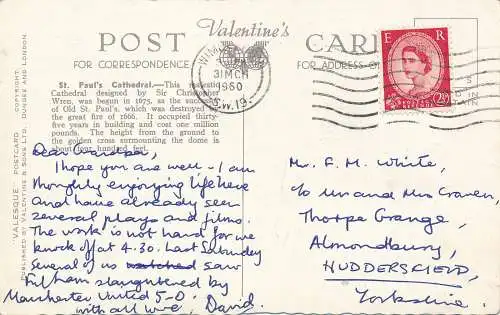 Valentine's
POST CARD
FOR CORRESPONDENCE
FOR ADDRESS O
St. Paul's Cathedral.—This
Cathedral designed by Sir Christopher
Wren, was begun in 1675, as the successor
of Old St. Paul's, which was destroyed in
the great fire of 1666. It occupied thirty-
five years in building and cost one million
pounds. The height from the ground to the
golden cross surmounting the dome is
about four hundred feet.
31 MCH
1960
S.W.19.
E R
2½D
"VALESQUE" POSTCARD
PUBLISHED BY VALENTINE & SONS LTD. DUNDEE AND LONDON.
Dear Grandpa,
I hope you are well - I am
thoroghly enjoying life here
and have already seen
several plays and films.
The work is not hard for we
knock off at 4.30. Last Saturday
several of us watched saw
Fulham slaughtered by
Manchester United 5-0.
with all love, David.
Mr. F. M. White,
c/o Mr and Mrs Craven,
Thorpe Grange,
Almondbury,
HUDDERSFIELD,
Yorkshire.